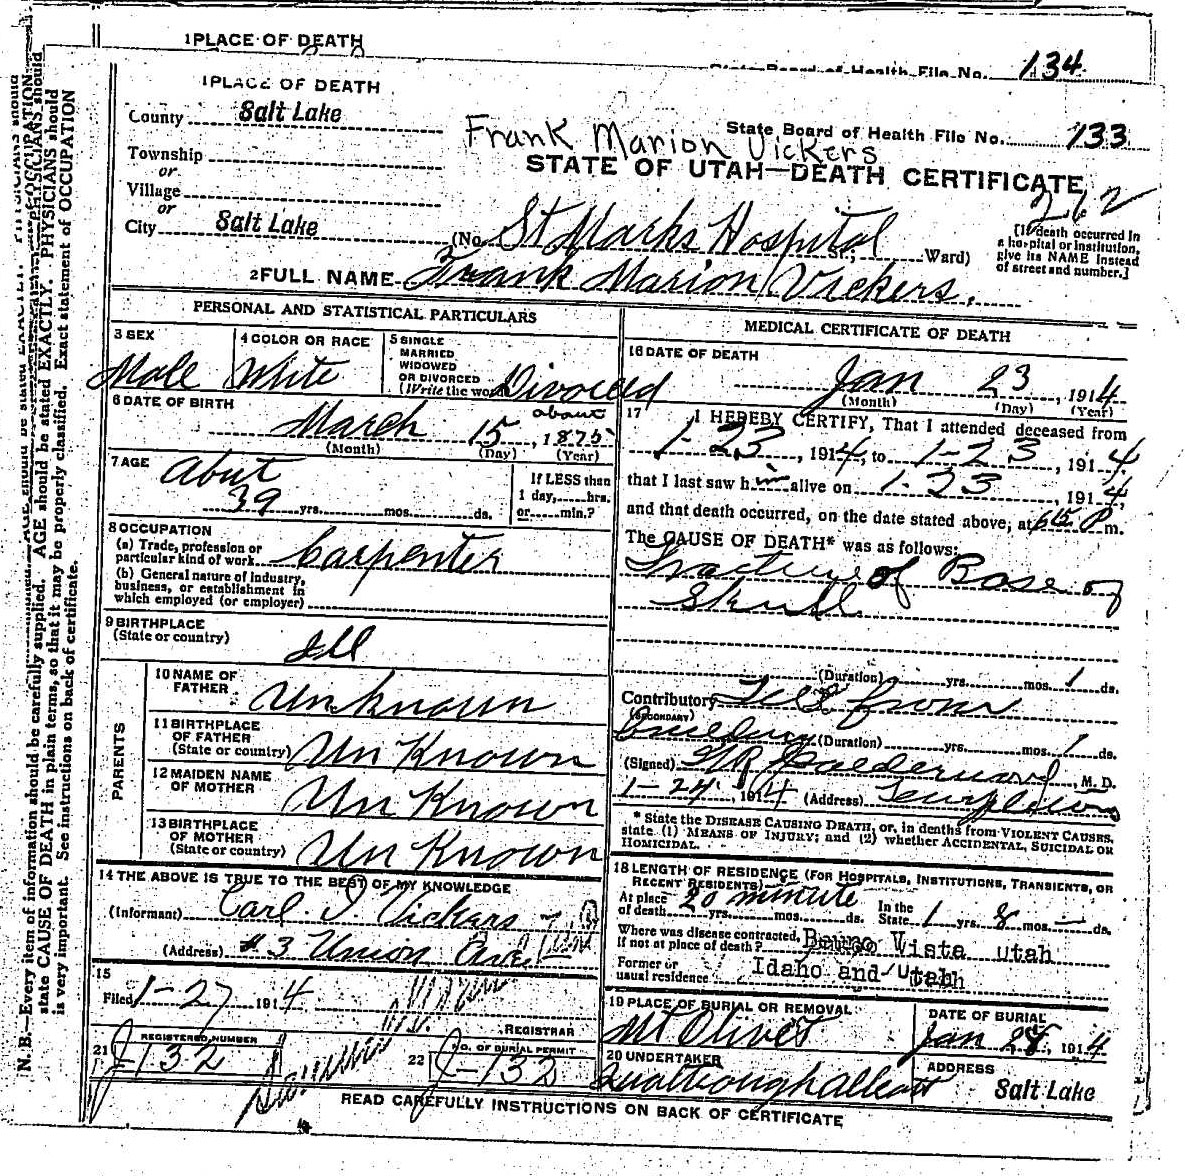 1 PLACE OF DEATH
State Board of Health File No. 134
1 PLACE OF DEATH
County Salt Lake
State Board of Health File No. 133
Frank Marion Vickers
Township
or
Village
or
City Salt Lake
STATE OF UTAH—DEATH CERTIFICATE
262
(No. St Marks Hospital St.; Ward)
[If death occurred in
a hospital or institution,
give its NAME instead
of street and number.]
2 FULL NAME Frank Marion Vickers.
PERSONAL AND STATISTICAL PARTICULARS
3 SEX
Male
4 COLOR OR RACE
White
5 SINGLE
MARRIED
WIDOWED
OR DIVORCED
(Write the word) Divorced
6 DATE OF BIRTH
March 15, about 1875
(Month) (Day) (Year)
7 AGE
About
39 yrs. mos. ds.
If LESS than
1 day, hrs.
or min.?
8 OCCUPATION
(a) Trade, profession or
particular kind of work Carpenter
(b) General nature of Industry,
business, or establishment in
which employed (or employer)
9 BIRTHPLACE
(State or country)
Ill
PARENTS
10 NAME OF
FATHER
Unknown
11 BIRTHPLACE
OF FATHER
(State or country) Un Known
12 MAIDEN NAME
OF MOTHER
Un Known
13 BIRTHPLACE
OF MOTHER
(State or country) Un Known
14 THE ABOVE IS TRUE TO THE BEST OF MY KNOWLEDGE
(Informant) Carl. I. Vickers
(Address) #3 Union
15
Filed 1-27 1914
REGISTRAR
21 REGISTERED NUMBER
J-132
22 NO. OF BURIAL PERMIT
J-132
MEDICAL CERTIFICATE OF DEATH
16 DATE OF DEATH
Jan 23, 1914
(Month) (Day) (Year)
17
I HEREBY CERTIFY, That I attended deceased from
1-23, 1914, to 1-23, 1914
that I last saw him alive on 1-23, 1914,
and that death occurred, on the date stated above, at 615 P m.
The CAUSE OF DEATH* was as follows:
Fracture of Base of
Skull
(Duration) yrs. mos. 1 ds.
Contributory Fell from
(SECONDARY)
Building (Duration) yrs. mos. 1 ds.
(Signed) Calderwood, M. D.
1-24, 1914 (Address)
* State the DISEASE CAUSING DEATH, or, in deaths from VIOLENT CAUSES,
state (1) MEANS OF INJURY; and (2) whether ACCIDENTAL, SUICIDAL OR
HOMICIDAL.
18 LENGTH OF RESIDENCE (FOR HOSPITALS, INSTITUTIONS, TRANSIENTS, OR
RECENT RESIDENTS)
At place
of death 20 minute yrs. mos. ds.
In the
State 1 yrs. 8 mos. — ds.
Where was disease contracted,
if not at place of death? Vista Utah
Former or
usual residence Idaho and Utah
19 PLACE OF BURIAL OR REMOVAL
Mt Olivet
DATE OF BURIAL
Jan 28, 1914
20 UNDERTAKER
ADDRESS
Salt Lake
READ CAREFULLY INSTRUCTIONS ON BACK OF CERTIFICATE
N. B.—Every item of information should be carefully supplied. AGE should be stated EXACTLY. PHYSICIANS should
state CAUSE OF DEATH in plain terms, so that it may be properly classified. Exact statement of OCCUPATION
is very important. See instructions on back of certificate.